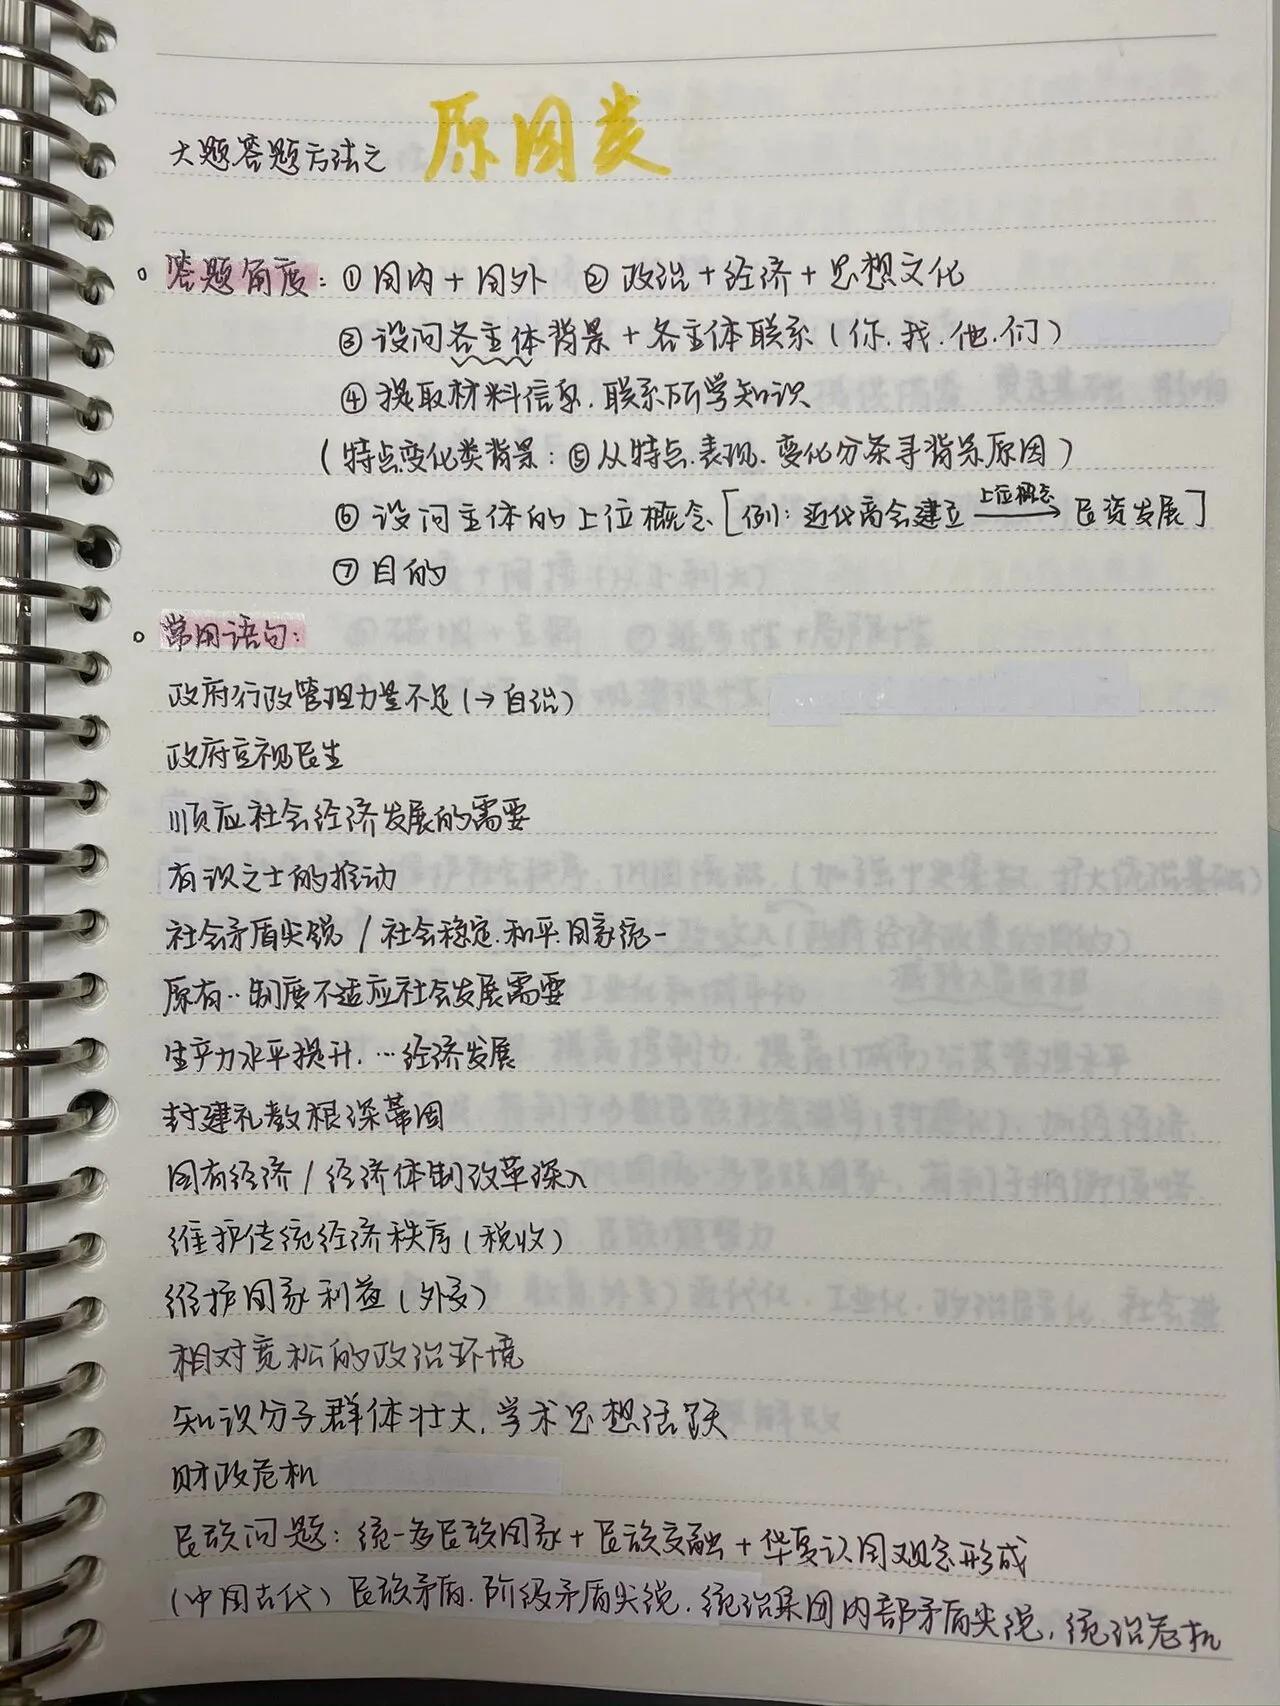 大题答题方法之 原因类
答题角度：①国内+国外 ②政治+经济+思想文化
③设问各主体背景+各主体联系(你.我.他.们)
④提取材料信息.联系所学知识
(特点变化类背景：⑤从特点.表现.变化分条寻背景原因)
⑥设问主体的上位概念[例：近代商会建立 上位概念→ 民资发展]
⑦目的
常用语句：
政府行政管理力量不足(→自治)
政府重视民生
顺应社会经济发展的需要
有识之士的推动
社会矛盾尖锐/社会稳定.和平.国家统一
原有…制度不适应社会发展需要
生产力水平提升.…经济发展
封建礼教根深蒂固
国有经济/经济体制改革深入
维护传统经济秩序(税收)
维护国家利益(外交)
相对宽松的政治环境
知识分子群体壮大.学术思想活跃
财政危机
民族问题：统一多民族国家+民族交融+华夏认同观念形成
(中国古代)民族矛盾.阶级矛盾尖锐.统治集团内部矛盾尖锐，统治危机